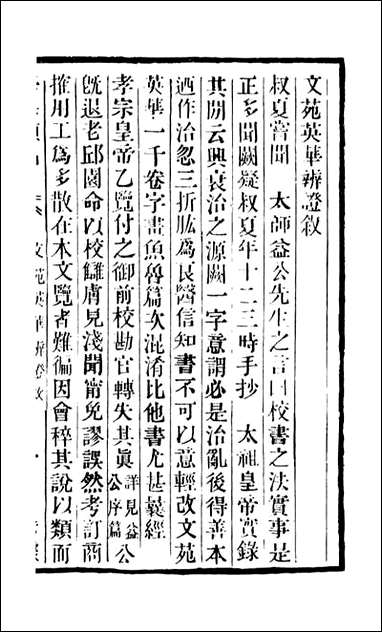 文苑英華辨證敘
叔夏嘗聞　太師益公先生之言曰校書之法實事是
正多聞闕疑叔夏年十二三時手抄　太祖皇帝實錄
其閒云興衰治之源闕一字意謂必是治亂後得善本
迺作治忽三折肱為良醫信知書不可以意輕改文苑
英華一千卷字畫魚魯篇次混淆比他書尤甚曩經
孝宗皇帝乙覽付之御前校勘官轉失其眞詳見益公序篇公
旣退老邱園命以校讎膚見淺聞甯免謬誤然考訂商
搉用工為多散在本文覽者難徧因會稡其說以類而
文苑英華辨證敘